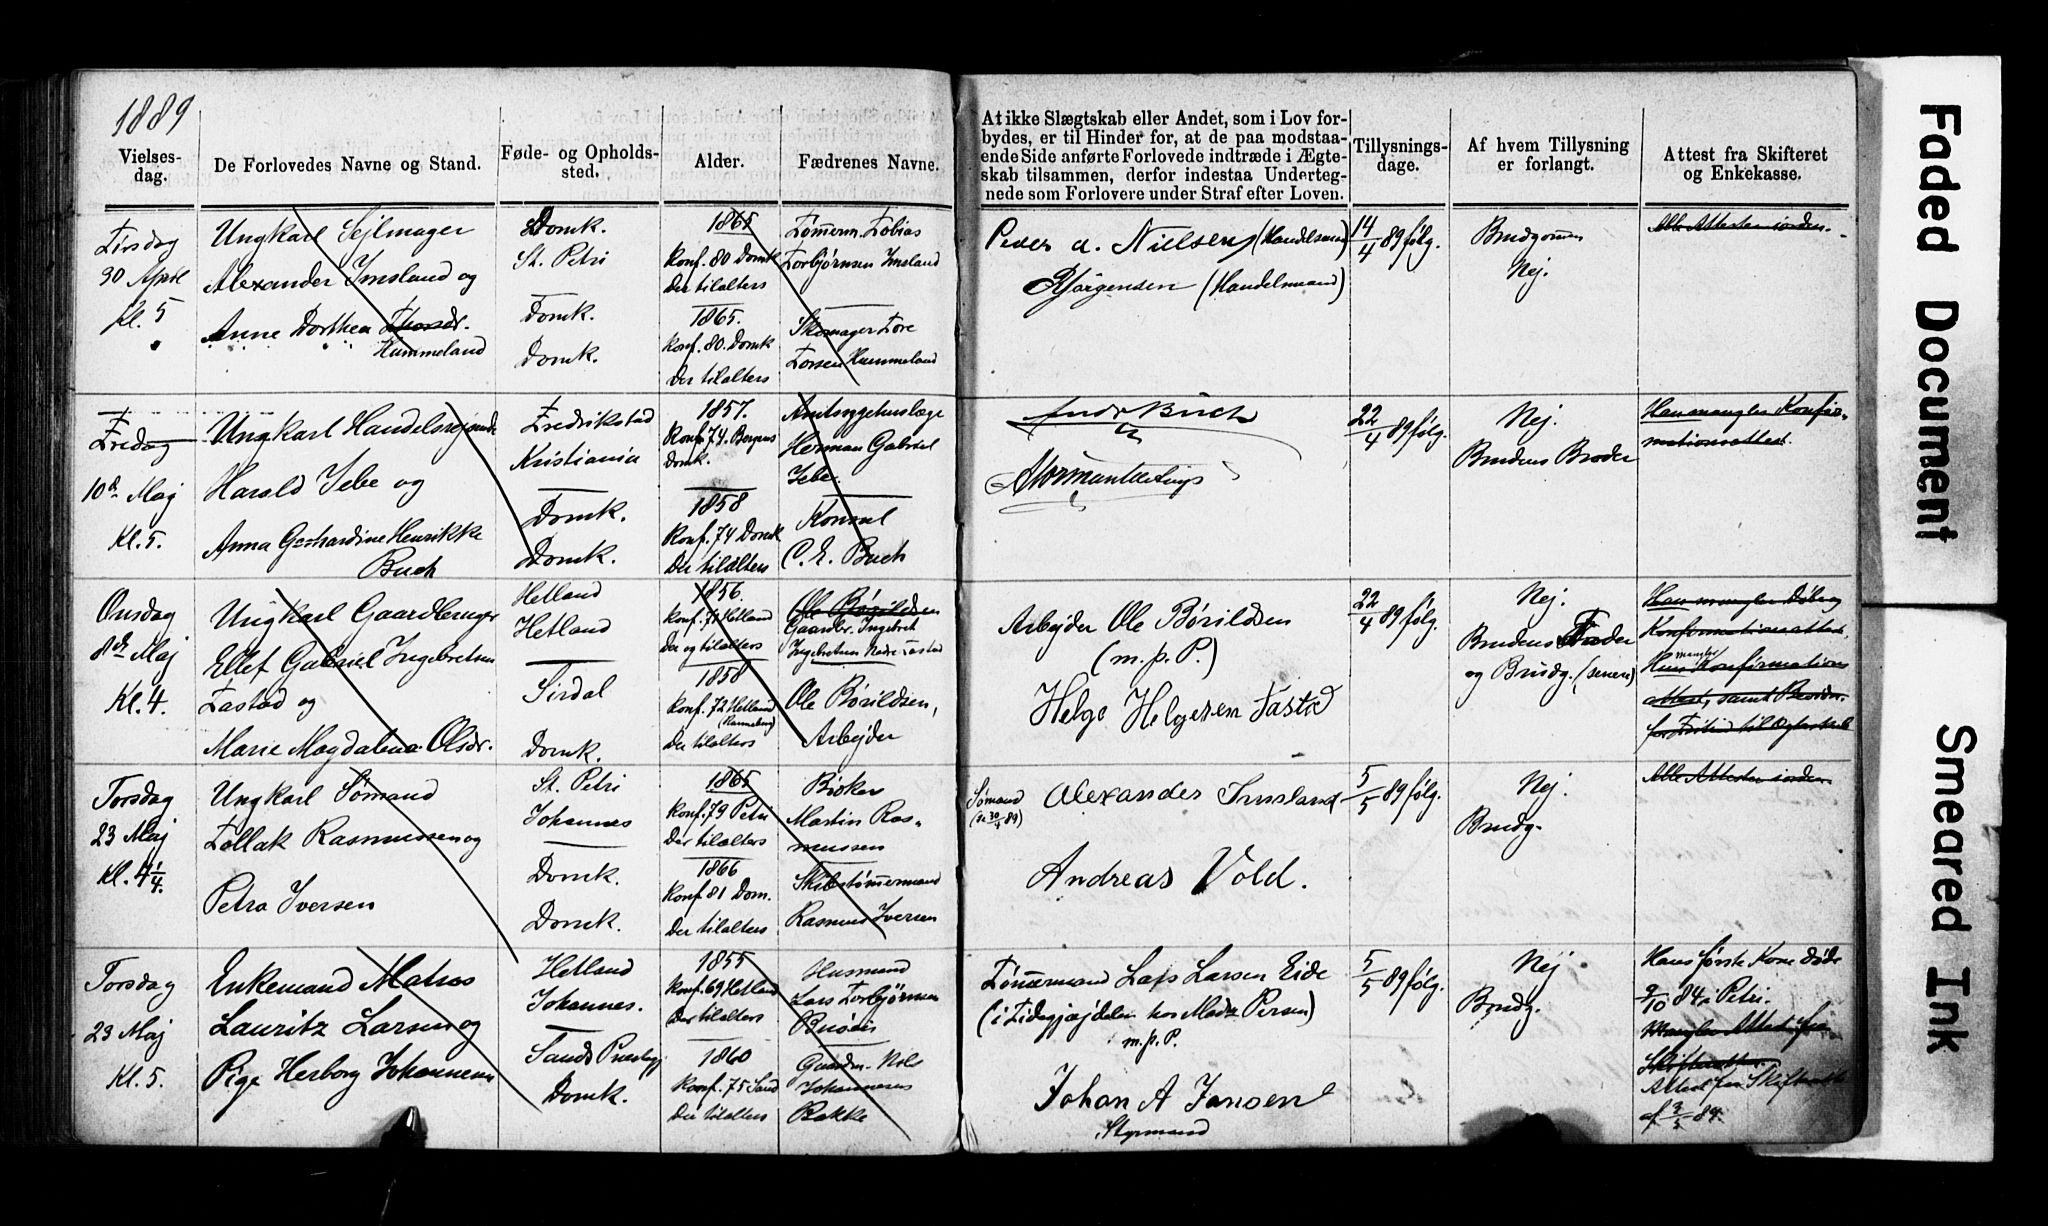 1889
Vielses-
dag.
De Forlovedes Navne og Stand.
Føde- og Opholds-
sted.
Alder.
Fædrenes Navne.
At ikke Slægtskab eller Andet, som i Lov for-
bydes, er til Hinder for, at de paa modstaa-
ende Side anførte Forlovede indtræde i Ægte-
skab tilsammen, derfor indestaa Underteg-
nede som Forlovere under Straf efter Loven.
Tillysnings-
dage.
Af hvem Tillysning
er forlangt.
Attest fra Skifteret
og Enkekasse.
Tirsdag
30 April
Kl. 5
Ungkarl Sejlmager
Alexander Imsland og
Anne Dorthea Thorsdr.
Hummeland
Domk.
St. Petri
Domk.
Domk.
1865
Konf. 80 Domk
Der tilalters
1865.
Konf. 80. Domk
Der tilalters
Tømmerm. Tobias
Torbjørnsen Imsland
Skomager Tore
Torsen Hummeland
Peder A. Nielsen (Handelsmand)
R Jörgensen (Handelsmand)
14/4 89 følg.
Brudgommen
Nej.
Alle Attester iorden.
Fredag
10de Maj
Kl. 5.
Ungkarl Handelsrejsende
Harald Isbe og
Anna Gerhardine Henrikke
Buch
Fredrikstad
Kristiania
Domk.
Domk.
1857.
Konf. 74. Bergens
Domk.
1858
Konf. 74 Domk
Der tilalters
Amtssygehuslæge
Herman Gabriel
Konsul
C. E. Buch
Buch
22/4 89 følg.
Nej.
Brudens Broder
Han mangler Konfir-
mationsattest.
Onsdag
8de Maj
Kl. 4.
Ungkarl Gaardbruger
Ellef Gabriel Ingebretsen
Tastad og
Marie Magdalena Olsdr.
Hetland
Hetland
Sirdal
Domk.
1856.
Konf. 71 Hetland
Der og tilalters
1858
Konf. 72 Hetland
Der tilalters
Ole Børildsen
Gaardbr. Ingebret
Ingebretsen Nedre Tastad
Ole Børildsen,
Arbejder
Arbejder Ole Børildsen
(m. p. P.)
Helge Helgesen Tastad
22/4 89 følg.
Nej.
Brudens Fader
og Brudg. (senere)
Han mangler Døbe og
Konfirmationsattest.
Hun mangler Konfirmations
attest, samt Bevidn.
for Fritid til Ægteskab
Torsdag
23 Maj
Kl. 4 1/4.
Ungkarl Sømand
Tollak Rasmussen og
Petra Iversen
St. Petri
Johannes
Domk.
Domk.
1865
Konf. 79 Petri
Der tilalters
1866
Konf. 81 Dom.
Der tilalters
Bøker
Martin Ras-
mussen
Skibstømmermand
Rasmus Iversen
Sømand
Alexander Imsland
Andreas Vold.
5/5 89 følg.
Nej.
Brudg.
Alle Attester iorden
Torsdag
23 Maj
Kl. 5.
Enkemand Matros
Lauritz Larsen og
Pige Herborg Johannesen
Hetland
Johannes.
Sands Præstegj
Domk.
1855
Konf. 69 Hetland
Der tilalters
1860
Konf. 75 Sand
Der tilalters
Husmand
Lars Torbjørnsen
Buøen
Gaardm. Nils
Johannesen
Bakke
Tømmermand Lars Larsen Eide
m. p. P.
Johan A Jansen
Styrmand
5/5 89 følg.
Nej
Brudg.
Hans første Kone døde
9/10 84 i Petri.
Mangler Attest fra
Skifteretten
Attest fra Skifteretten
af 3/5 89.
Faded Document
Smeared Ink